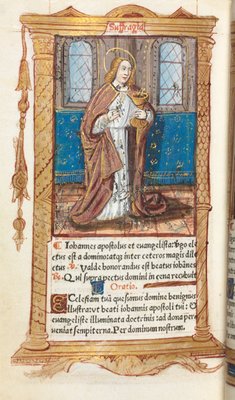 Suffragia
Iohannes apostolus et euangelista: virgo ele
ctus est a domino: atq; inter ceteros magis dile
ctus. ℣. Valde honorandus est beatus iohānes
℟. Qui supra pectus domini in cena recubuit
Oratio.
Ecclesiam tuā quesumus domine benignus
illustra: vt beati iohannis apostoli tui: et
euangeliste illuminata doctrinis: ad dona per
ueniat sempiterna. Per dominum nostrum.